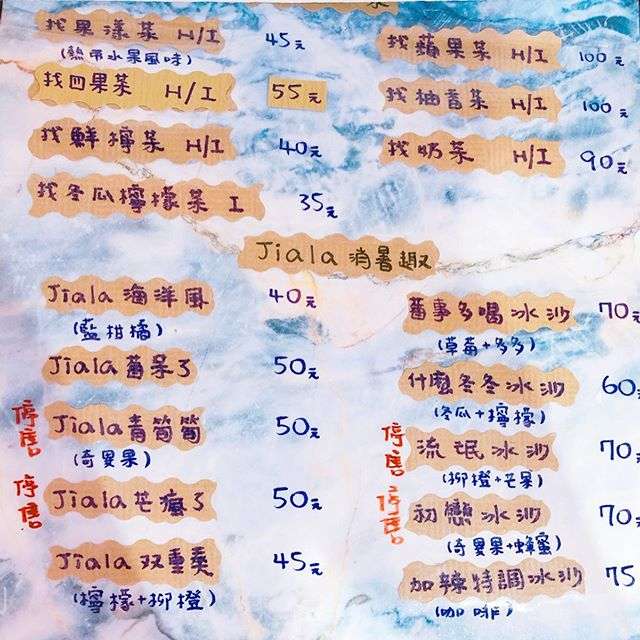 找果漾茶 H/I 45元
(熱帶水果風味)
找四果茶 H/I 55元
找鮮檸茶 H/I 40元
找冬瓜檸檬茶 I 35元
找蘋果茶 H/I 100元
找柚香茶 H/I 100元
找奶茶 H/I 90元
Jiala 消暑趣
Jiala 海洋風 40元
(藍柑橘)
Jiala 莓呆了 50元
停售 Jiala 青筍筍 50元
(奇異果)
停售 Jiala 芒瘋了 50元
Jiala 双重奏 45元
(檸檬+柳橙)
莓事多喝冰沙 70元
(草莓+多多)
什麼冬冬冰沙 60元
(冬瓜+檸檬)
停售 流氓冰沙 70元
(柳橙+芒果)
停售 初戀冰沙 70元
(奇異果+蜂蜜)
加辣特調冰沙 75
(咖啡)